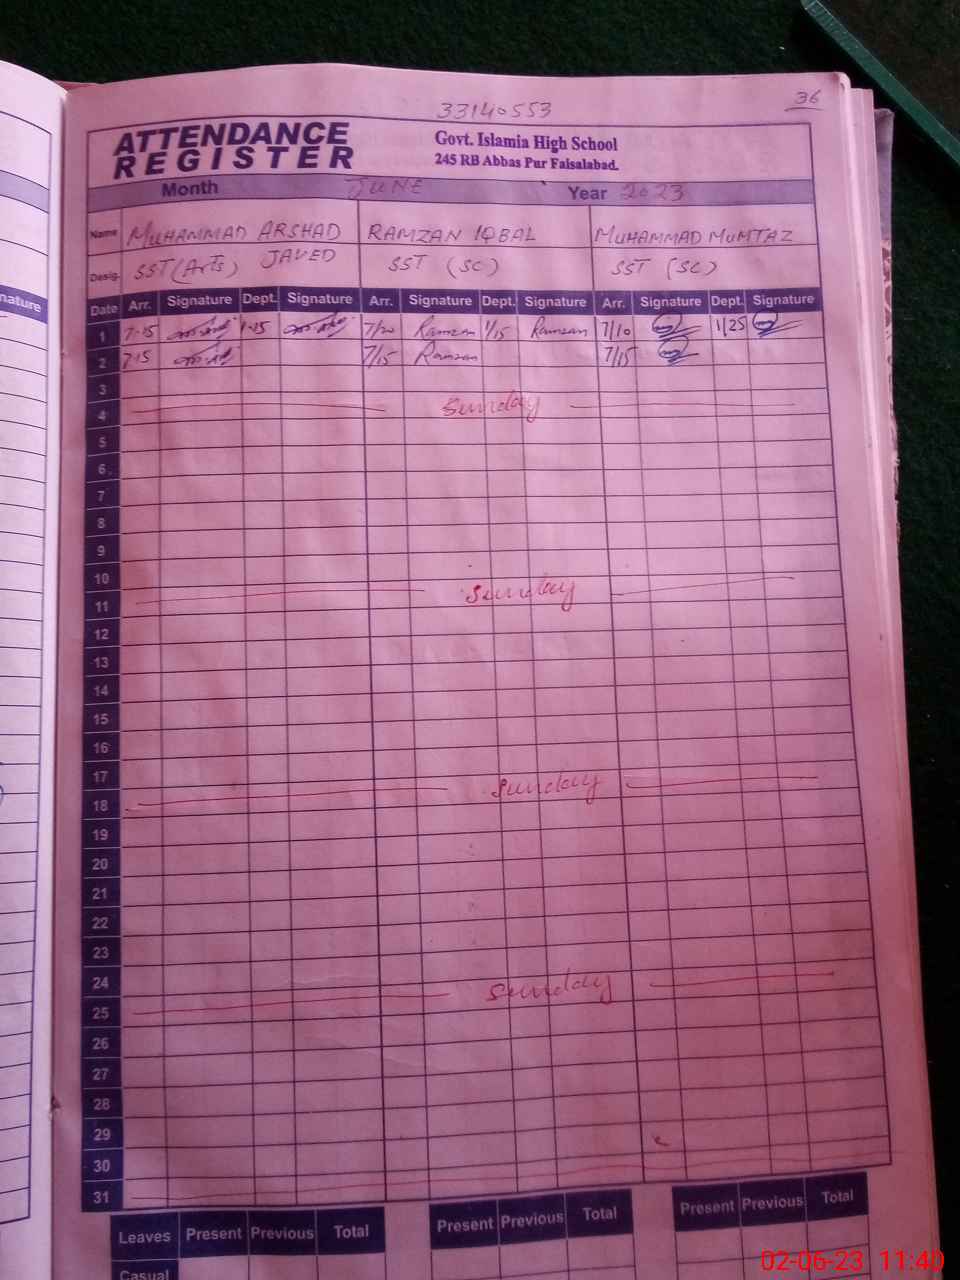 33140553
36
ATTENDANCE
REGISTER
Govt. Islamia High School
245 RB Abbas Pur Faisalabad.
Month JUNE Year 2023
Name MUHAMMAD ARSHAD RAMZAN IQBAL MUHAMMAD MUMTAZ
JAVED
Desig. SST (Arts) SST (SC) SST (SC)
nature
Date Arr. Signature Dept. Signature Arr. Signature Dept. Signature Arr. Signature Dept. Signature
1 7-15 1-15 7/20 Ramzan 1/15 Ramzan 7/10 1/25
2 7-15 7/15 Ramzan 7/15
3
4 Sunday
5
6
7
8
9
10
11 Sunday
12
13
14
15
16
17
18 Sunday
19
20
21
22
23
24
25 Sunday
26
27
28
29
30
31
Leaves Present Previous Total Present Previous Total Present Previous Total
Casual
02-06-23 11:40